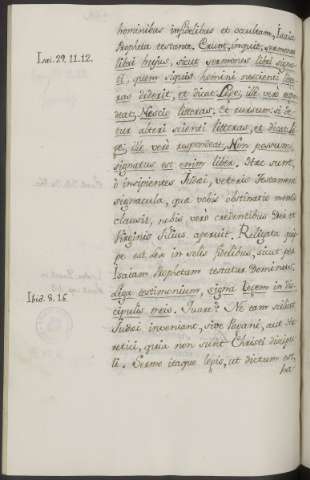 hominibus infidelibus et occultam, Isaia
Propheta testante. Erunt, inquit, sermones
Isai. 29. 11. 12.
libri hujus, sicut sermones libri signa-
ti, quem siquis homini nescienti litte-
ras dederit, et dicat Lege, ille vero respon-
deat, Nescio litteras, et rursum si de-
tur alteri scienti litteras, et dicat Le-
ge, ille vero respondeat, Non possum,
signatus est enim liber. Haec sunt,
o insipientes Judaei, veteris Testamenti
signacula, quae vobis obstinatio mentis
clausit, nobis vero credentibus Dei et
Virginis Filius aperuit. Religata quip-
pe est Lex in solis fidelibus, sicut per
Isaiam Prophetam testatur Dominus,
Ibid. 8. 16
Liga testimonium, signa Legem in Dis-
cipulis meis. Quare? Ne eam scilicet
Judaei inveniant, sive Pagani, aut Hae-
retici, quia non sunt Christi discipu-
li. Erant itaque lapis, ut dictum est,